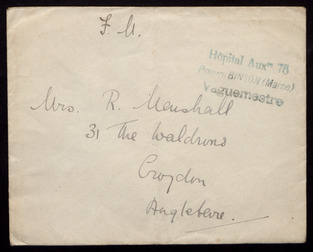 F. M.
Hôpital Auxre 78
BINSON (Marne)
Vaguemestre
Mrs. R. Marshall
31 The Waldrons
Croydon
Angleterre.